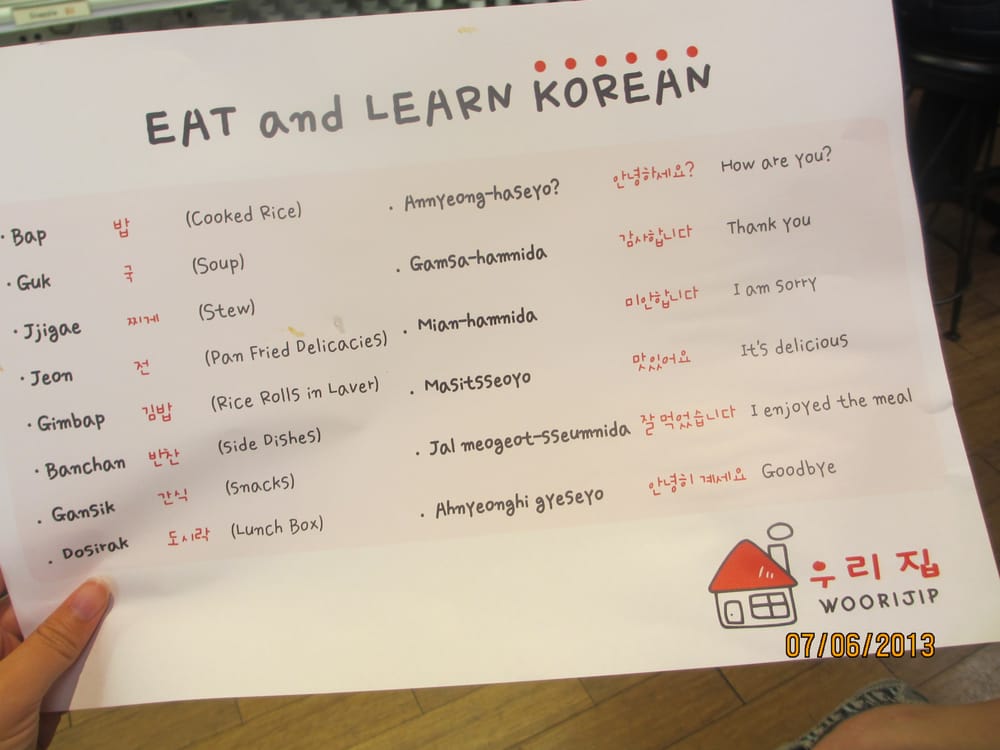 EAT and LEARN KOREAN
· Bap 밥 (Cooked Rice)
· Guk 국 (Soup)
· Jjigae 찌게 (Stew)
· Jeon 전 (Pan Fried Delicacies)
· Gimbap 김밥 (Rice Rolls in Laver)
· Banchan 반찬 (Side Dishes)
· Gansik 간식 (Snacks)
· Dosirak 도시락 (Lunch Box)
· Annyeong-haseyo? 안녕하세요? How are you?
· Gamsa-hamnida 감사합니다 Thank you
· Mian-hamnida 미안합니다 I am sorry
· Masitsseoyo 맛있어요 It's delicious
· Jal meogeot-sseumnida 잘 먹었습니다 I enjoyed the meal
· Ahnyeonghi gyeseyo 안녕히 계세요 Goodbye
우리집
WOORIJIP
07/06/2013